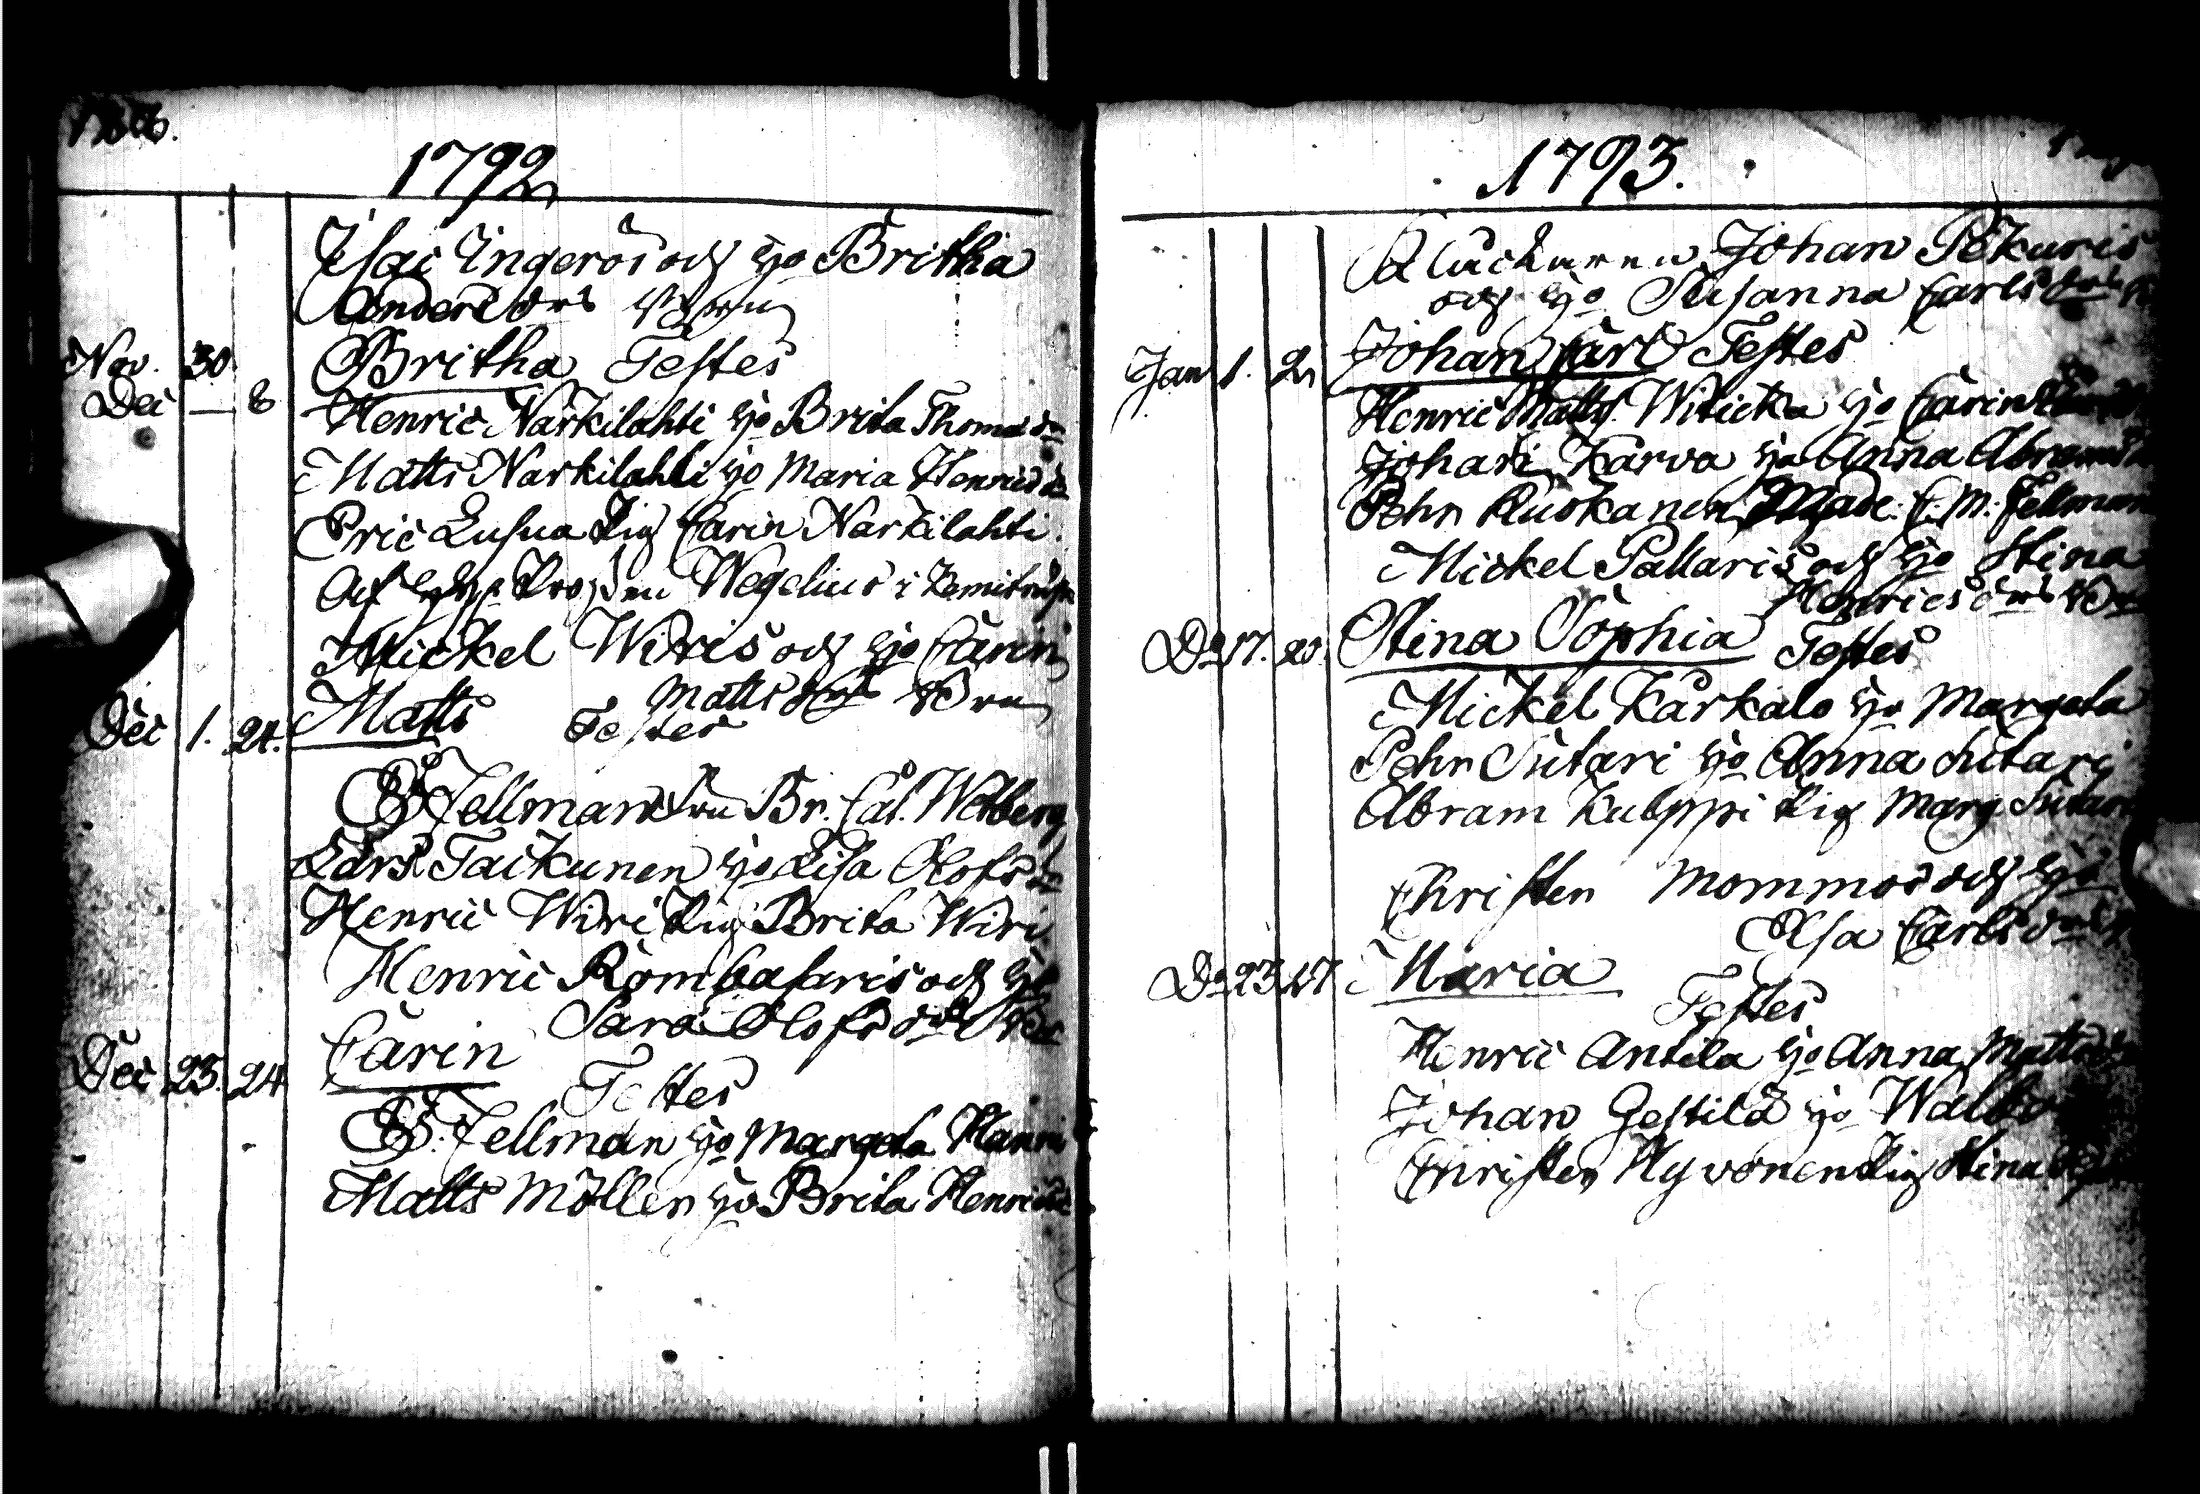 1792
Isac Ingerös och hjo Britha
Andersdrs
Britha Testes
Nov. 30
Dec — 8
Henric Narkilahti hjo Brita Thomasdr
Matts Narkilahti hjo Maria Henricsdr
Eric Lusua Pig Carin Narkilahti
Af Wegelius i Kemiträsk
Mickel Wiris och hjo Carin
Mattsdrs
Dec 1. 24. Matts Testes
E Fellman Fru Br. Cat. Wetberg
Lars Taikunen hjo Lisa Olofsdr
Henric Wiri Pig Brita Wiri
Henric Römbasaris och hjo
Sara Olofsdrs
Dec 23. 24 Carin
Testes
E. Fellman hjo Margeta Hanni
Matts Möller hjo Brita Henricsdr
1793.
Kluckaren Johan Pekuris
och hjo Susanna Carlsdrs
Jan 1. 2 Johan Carl Testes
Henric Matts. Witicka hjo Carin
Johan Karva hjo Anna Abramsdr
Pehr Kuokanen Made: C. M: Fellman
Mickel Pallaris och hjo Stina
Henricsdrs
Do 17. 20. Stina Sophia Testes
Mickel Karkalo hjo Margeta
Pehr Sutari hjo Anna Sutari
Abram Kulppi Pig Marg Sutari
Christer Mommos och hjo
Elsa Carlsdrs
Do 23 27 Maria
Testes
Henric Antila hjo Anna Mattsdr
Johan Gestilä hjo
Christer Hyvönen Pig Stina